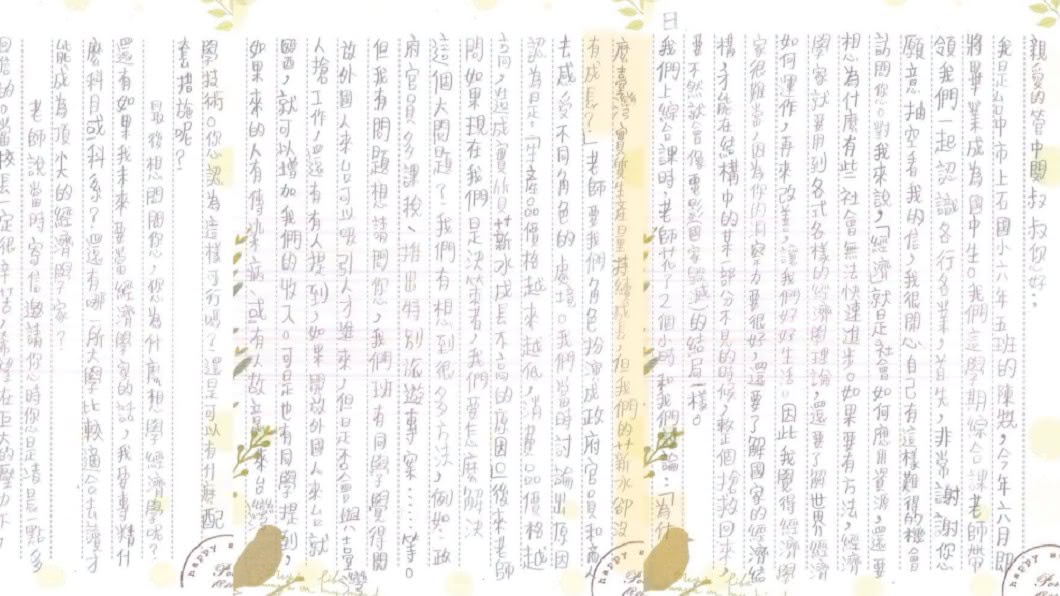 親愛的管中閔叔叔你好：
我是台中市上石國小六年五班的陳 ，今年六月即
將畢業成為國中生。我們這學期綜合課老師帶
領我們一起認識各行各業，首先，非常謝謝您
願意抽空看我的信，我很開心自己有這樣難得的機會
訪問您。對我來說，「經濟」就是社會如何應用資源，還要
想為什麼有些社會無法快速進步。如果要有方法，經濟
學家就要用到各式各樣的經濟的理論，還要了解世界經濟
如何運作，再來改善，讓我們好好生活。因此我覺得經濟學
家很難當，因為你的洞察力要很好，還要了解國家的經濟結
構，才能在結構中的某一部分不見的時候，整個搶救回來，
要不然就會像電影國家 的結局一樣。
日我們上綜合課時，老師花了2個小時和我們討論：「為什
麼臺灣實質生產量持續成長，但我們的薪水卻沒
有成長？」老師要我們角色扮演成政府官員和
去感受不同角色的處境。我們當時討論出原因
認為是：「生產品價格越來越低，消費品價格越
高，造成實質 薪水成長不高的原因」後來老師
問如果現在我們是決策者，我們要怎麼解決
這個大問題？我們有想到很多方法，例如：政
府官員多課稅、推出特別 專案……等。
但我有問題想請問您，我們班有同學覺得開
放外國人來台可以吸引人才進來，但是否會與台灣
人搶工作，還有有人提到，如果開放外國人來台就
醫，就可以增加我們的收入。可是也有同學提到，
如果來的人有傳染病，或有人故意 來台
學技術。您認為這樣可行嗎？還是可以有什麼配
套措施呢？
最後想問問您，您為什麼想學經濟學呢？
還有如果我未來要當經濟學家的話，我要專精什
麼科目或科系？還有哪一所大學比較適合去讀才
能成為頂尖的經濟學家？
老師說當時寄信邀請你時您是清晨一點多
回信的。當校長一定很辛苦，希望在巨大的壓力下
happy